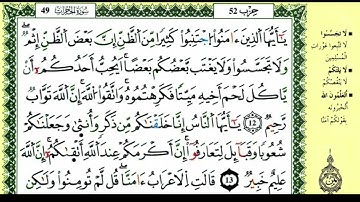 49 سورة الحجرات
حزب 52
يَٰٓأَيُّهَا الذِينَ ءَامَنُوا اجْتَنِبُوا كَثِيرًا مِّنَ الظَّنِّ إِنَّ بَعْضَ الظَّنِّ إِثْمٌ
وَلَا تَجَسَّسُوا وَلَا يَغْتَب بَّعْضُكُم بَعْضًا أَيُحِبُّ أَحَدُكُمْ أَنْ
يَّاكُلَ لَحْمَ أَخِيهِ مَيِّتًا فَكَرِهْتُمُوهُ وَاتَّقُوا اللَّهَ إِنَّ اللَّهَ تَوَّابٌ
رَّحِيمٌ 12 يَٰٓأَيُّهَا النَّاسُ إِنَّا خَلَقْنَٰكُم مِّن ذَكَرٍ وَأُنثَىٰ وَجَعَلْنَٰكُمْ
شُعُوبًا وَقَبَآئِلَ لِتَعَارَفُوا إِنَّ أَكْرَمَكُمْ عِندَ اللَّهِ أَتْقَىٰكُمْ إِنَّ اللَّهَ
عَلِيمٌ خَبِيرٌ 13 قَالَتِ الْأَعْرَابُ ءَامَنَّا قُل لَّمْ تُومِنُوا وَلَٰكِن
لا تجسسوا
لا تتبعوا عورات
المسلمين
لا يلتكم